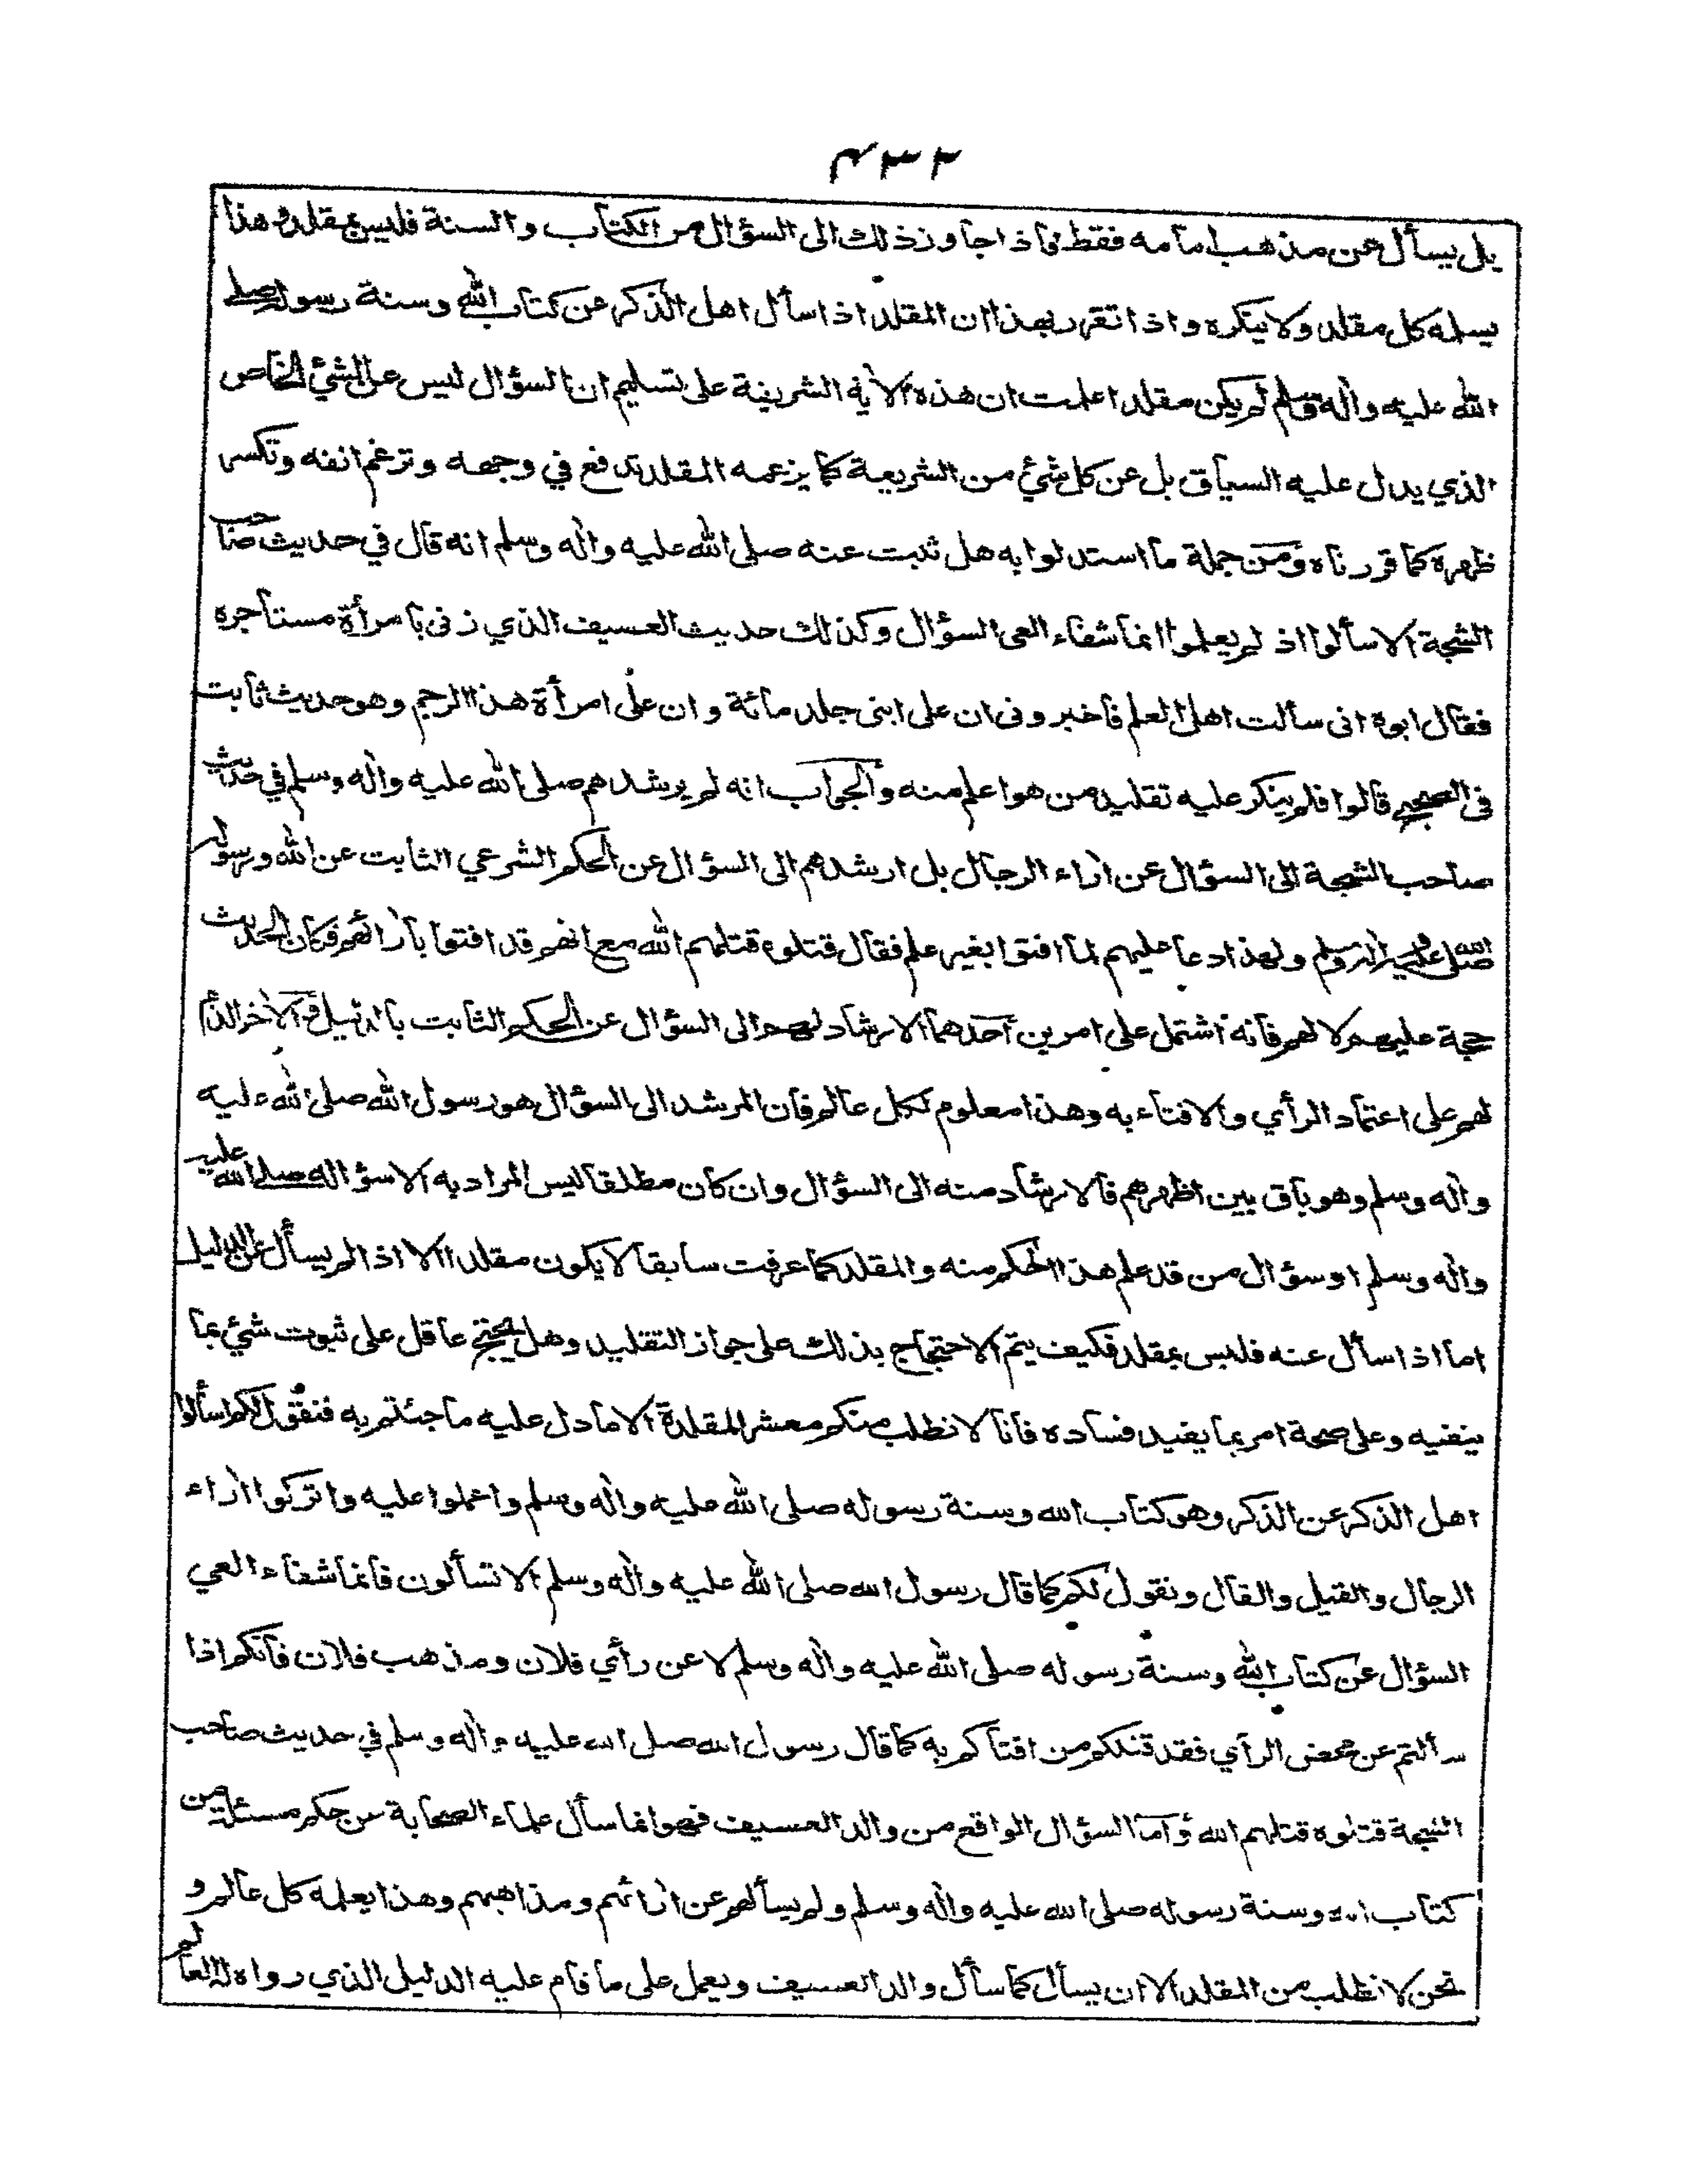 ٤٣٢
بل يسأل عن مذهب امامه فقط فاذا جاوز ذلك الى السؤال من الكتاب والسنة فليس بمقلد وهذا
يسلمه كل مقلد ولا ينكره واذا تقرر بهذا ان المقلد اذا سأل اهل الذكر عن كتاب الله وسنة رسوله صلى
الله عليه وآله وسلم لم يكن مقلدا علمت ان هذه الآية الشريفة على تسليم ان السؤال ليس عن الشئ الخاص
الذي يدل عليه السياق بل عن كل شئ من الشريعة كما يزعمه المقلد تدفع في وجهه وترغم انفه وتكسر
ظهره كما قررناه ومن جملة ما استدلوا به هل ثبت عنه صلى الله عليه وآله وسلم انه قال في حديث صاحب
الشجة الا سألوا اذ لم يعلموا انما شفاء العي السؤال وكذلك حديث العسيف الذي زنى بامرأة مستأجره
فقال ابوه انى سألت اهل العلم فأخبرونى ان على ابنى جلد مائة وان على امرأة هذا الرجم وهو حديث ثابت
فى الصحيح قالوا فلم ينكر عليه تقليد من هو اعلم منه والجواب انه لم يرشدهم صلى الله عليه وآله وسلم في حديث
صاحب الشجة الى السؤال عن آراء الرجال بل ارشدهم الى السؤال عن الحكم الشرعي الثابت عن الله ورسوله
صلى الله عليه وآله وسلم ولهذا دعا عليهم لما افتوا بغير علم فقال قتلوه قتلهم الله مع انهم قد افتوا بآرائهم فكان الحديث
حجة عليهم لا لهم فانه اشتمل على امرين احدهما الارشاد لهم الى السؤال عن الحكم الثابت بالدليل والآخر الذم
لهم على اعتماد الرأي والافتاء به وهذا معلوم لكل عالم فان المرشد الى السؤال هو رسول الله صلى الله عليه
وآله وسلم وهو باق بين اظهرهم فالارشاد منه الى السؤال وان كان مطلقا ليس المراد به الا سؤاله صلى الله عليه
وآله وسلم او سؤال من قد علم هذا الحكم منه والمقلد كما عرفت سابقا لا يكون مقلدا الا اذا لم يسأل عن الدليل
اما اذا سأل عنه فليس بمقلد فكيف يتم الاحتجاج بذلك على جواز التقليد وهل يحتج عاقل على ثبوت شئ بما
ينفيه وعلى صحة امر بما يفيد فساده فانا لا نطلب منكم معشر المقلدة الا ما دل عليه ما جئتم به فنقول لكم اسألوا
اهل الذكر عن الذكر وهو كتاب الله وسنة رسوله صلى الله عليه وآله وسلم واعملوا عليه واتركوا آراء
الرجال والقيل والقال ونقول لكم كما قال رسول الله صلى الله عليه وآله وسلم الا تسألون فانما شفاء العي
السؤال عن كتاب الله وسنة رسوله صلى الله عليه وآله وسلم لا عن رأي فلان ومذهب فلان فانكم اذا
سألتم عن محض الرأي فقد قتلكم من افتاكم به كما قال رسول الله صلى الله عليه وآله وسلم في حديث صاحب
الشجة قتلوه قتلهم الله واما السؤال الواقع من والد العسيف فهو انما سأل علماء الصحابة عن حكم مسئلة من
كتاب الله وسنة رسوله صلى الله عليه وآله وسلم ولم يسألهم عن آرائهم ومذاهبهم وهذا يعلمه كل عالم و
نحن لا نطلب من المقلد الا ان يسأل كما سأل والد العسيف ويعمل على ما قام عليه الدليل الذي رواه له العالم